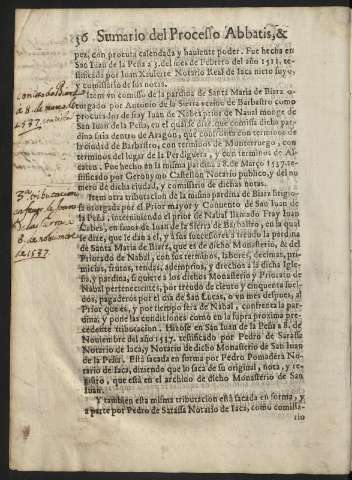 36 Sumario del Processo Abbatis, &
pez, con procura calendada y hauiente poder. Fue hecha en
San Iuan de la Peña a 3. del mes de Febrero del año 1511. tes-
tificada por Iuan Notario Real de Iaca nieto suyo,
y comissario de sus notas.
Item vn comisso de la pardina de Santa Maria de Biara o-
torgado por Antonio de la Sierra vezino de Barbastro como
procurador de fray Iuan de Nabet prior de Naual monge de
San Iuan de la Peña, en el qual se dize, que comissa dicha pardi-
na sita dentro de Aragon, que confronta con terminos de
la ciudad de Barbastro, con terminos de Monterruego, con
terminos del lugar de la Perdiguera, y con terminos de Al-
Fue hecho en la misma pardina a 8. de Março 1537. tes-
tificado por Geronymo Castellon Notario publico, y del nu-
mero de dicha ciudad, y comissario de dichas notas.
Item otra tributacion de la misma pardina de Biara
otorgada por el Prior mayor y Conuento de San Iuan de
la Peña, interuiniendo el prior de Nabal llamado Fray Iuan
Labès, en fauor de Iuan de la Sierra de Barbastro, en la qual
se dize, que le dan a el, y a sus successores a treudo la pardina
de Santa Maria de Biare, que es de dicho Monasterio, & del
Priorado de Nabal, con sus terminos, labores, decimas, pri-
micias, frutos, rendas, ademprios, y drechos a la dicha Igle-
sia, y pardina, si quiere a los dichos Monasterio y Priorato de
Nabal pertenecientes, por treudo de ciento y cinquenta suel-
dos, pagaderos por el dia de San Lucas, o vn mes despues, al
Prior que es, y por tiempo sera de Nabal, confrenta la par-
dina, y pone las condiciones como en la supra proxima pre-
cedente tributacion. Hizose en San Iuan de la Peña a 8. de
Nouiembre del año 1537. testificado por Pedro de Sarassa
Notario de Iaca, y Notario de dicho Monasterio de San Iuan
de la Peña. Està sacada en forma por Pedro Pomadera No-
tario de Iaca, diziendo que lo saca de su original, nota, y re-
gistro, que està en el archiuo de dicho Monasterio de San
Iuan.
Y tambien esta misma tributacion està sacada en forma, y
a parte por Pedro de Sarassa Notario de Iaca, como comissa-
rio
comiso de Biara
a 8. de março
1537
3ª tributacion
8. de nouiembre
de 1537